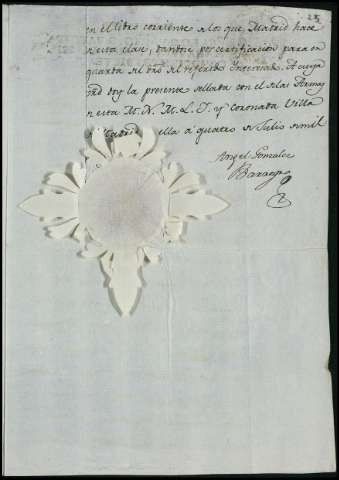 28
en el libro corriente de los que Madrid hace
de esta clase, dandose por certificacion para en
guarda de dro del referido Interesado. A cuyo
doy la presente sellada con el de las Armas
de esta M. N. M. L. I. y Coronada Villa
de Madrid ella a quatro de Julio de mil
Angel Gonzalez
Barreyro